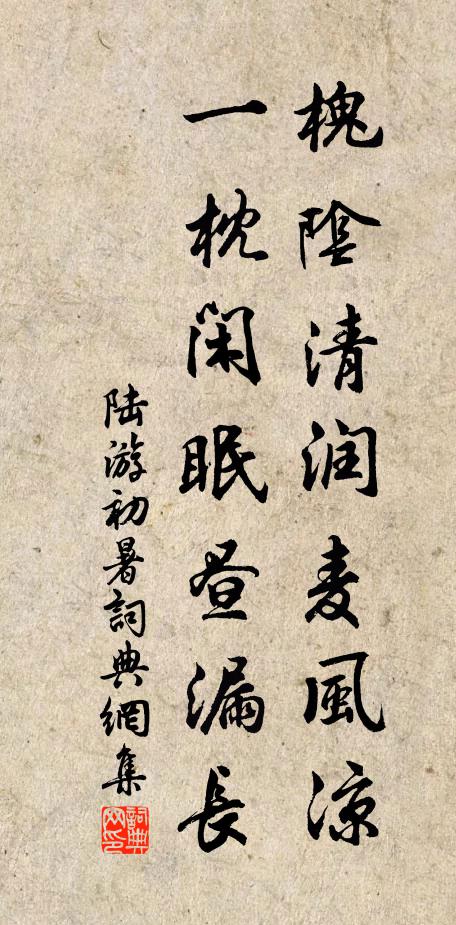 槐陰清润麦風凉
一枕閑眠昼漏長
陆游初暑詞典網集
詞典网印